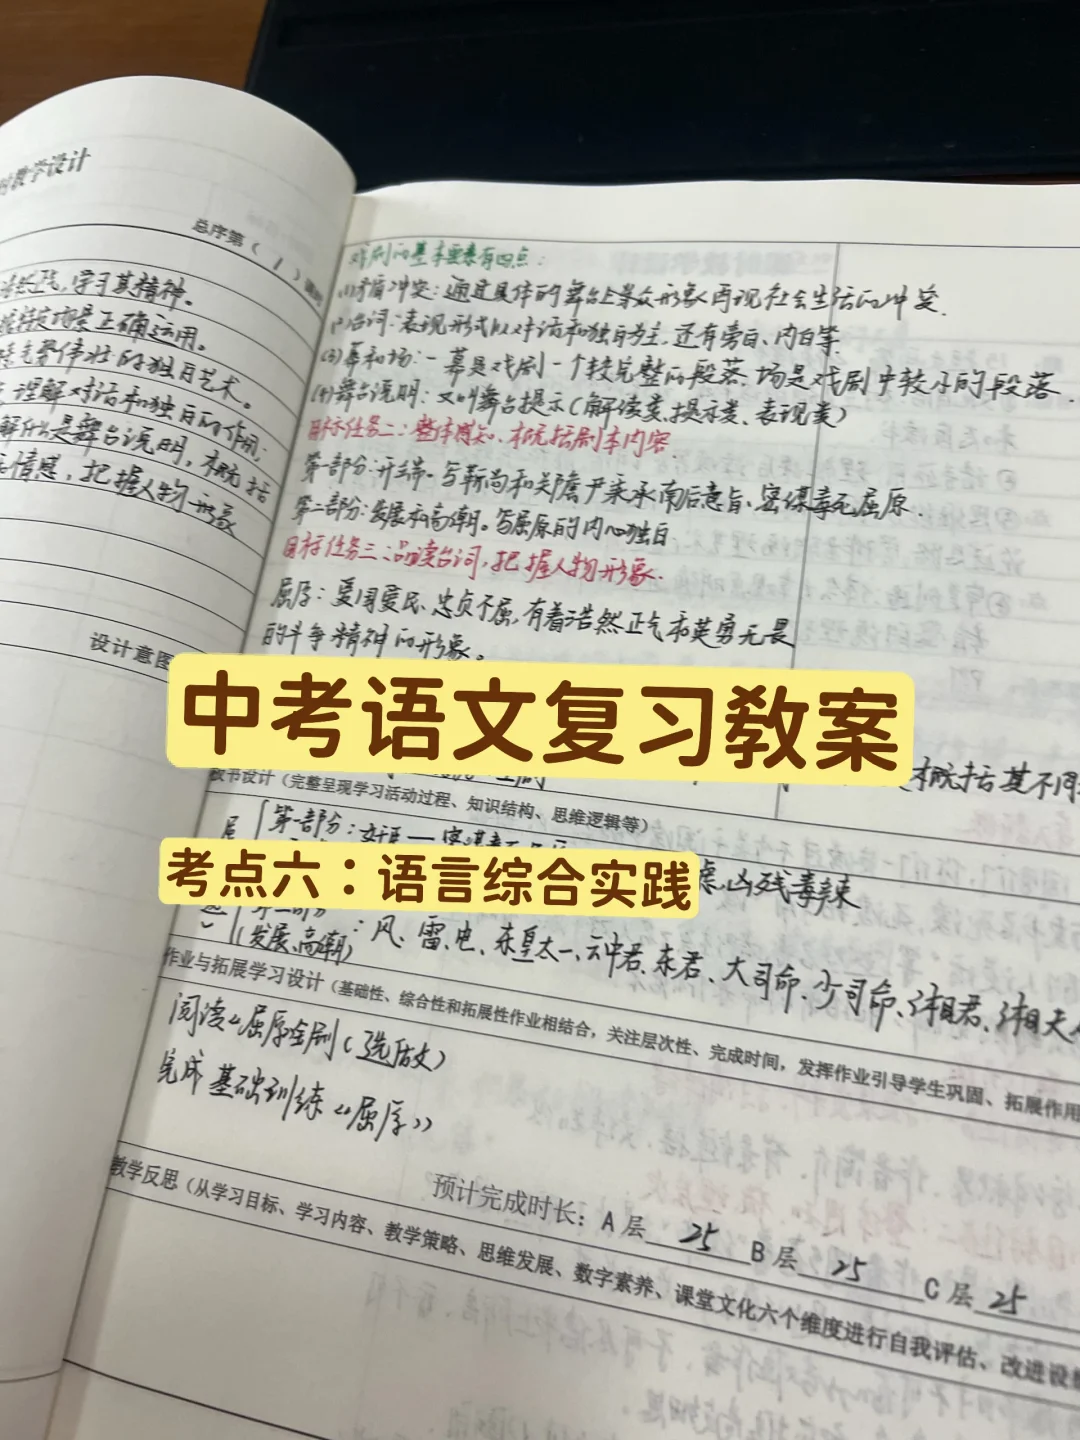 时教学设计
总序第（1）课时
浩然正气，学习其精神。
正确运用。
的独白艺术。
理解对话和独白的作用；
解什么是舞台说明，概括
情感，把握人物形象
设计意图
戏剧的基本要素有四点：
(1)矛盾冲突：通过具体的舞台上群众形象再现社会生活的冲突.
(2)台词：表现形式以对话和独白为主，还有旁白、内白等.
(3)幕和场：一幕是戏剧一个较完整的段落.场是戏剧中较小的段落.
(4)舞台说明：又叫舞台提示（解读类、提示类、表现类）
目标任务二：整体感知、概括剧本内容.
第一部分：开端.写靳尚和郑詹尹秉承南后意旨、密谋毒死屈原.
第二部分：发展和高潮。写屈原的内心独白
目标任务三：品读台词，把握人物形象.
屈原：爱国爱民、忠贞不屈，有着浩然正气和英勇无畏
的斗争精神的形象。
中考语文复习教案
概括其不同
板书设计（完整呈现学习活动过程、知识结构、思维逻辑等）
第一部分：
考点六：语言综合实践
凶残毒辣
（发展、高潮）：风、雷、电、东皇太一、云中君、东君、大司命、少司命、湘君、湘夫人
作业与拓展学习设计（基础性、综合性和拓展性作业相结合，关注层次性、完成时间，发挥作业引导学生巩固、拓展作用
阅读《屈原全剧（选做）
完成基础训练《屈原》
预计完成时长：A层 25 B层 25 C层 25
教学反思（从学习目标、学习内容、教学策略、思维发展、数字素养、课堂文化六个维度进行自我评估、改进设想